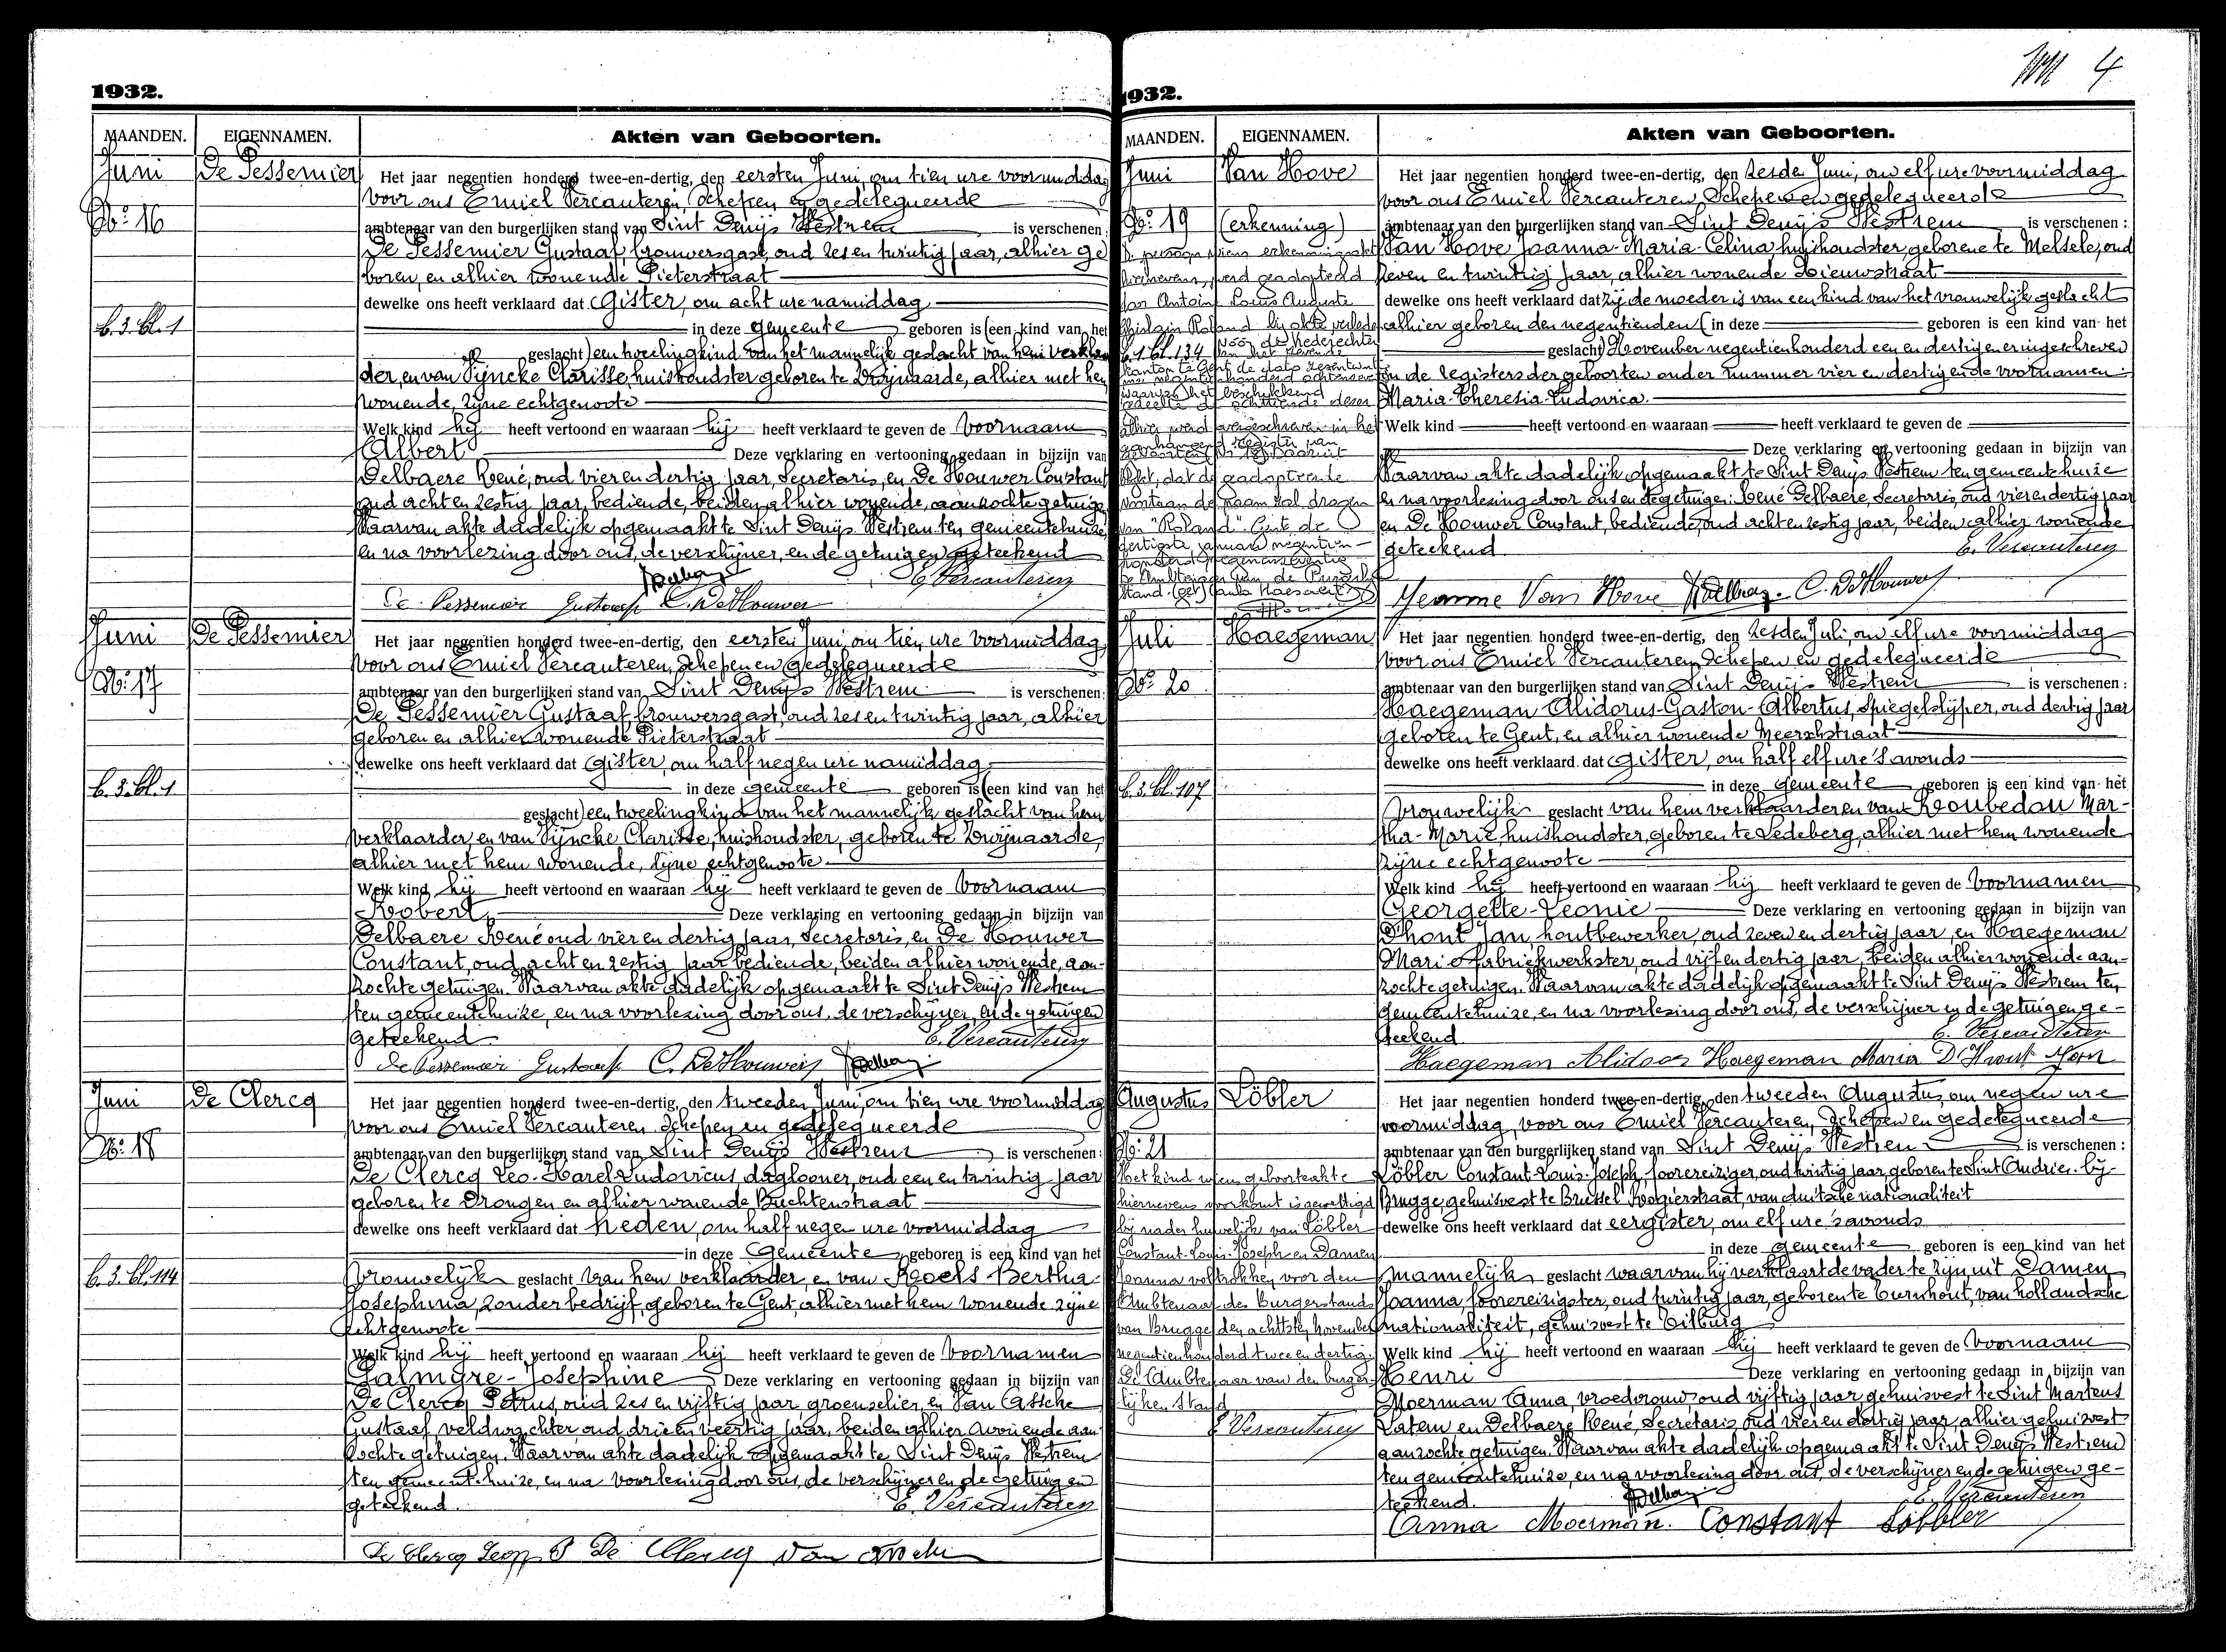 1932.
MAANDEN. EIGENNAMEN. Akten van Geboorten.
Juni De Pessemier Het jaar negentien honderd twee-en-dertig, den eersten Juni, om tien ure voormiddag
voor ons Emiel Vercauteren, Schepen en gedelegueerde
No. 16 ambtenaar van den burgerlijken stand van Sint Denijs Westrem is verschenen:
De Pessemier Gustaaf, brouwersgast, oud zes en twintig jaar, alhier ge
boren, en alhier wonende Pieterstraat
dewelke ons heeft verklaard dat Gister, om acht ure namiddag
b. 3. bl. 1 in deze gemeente geboren is (een kind van het
geslacht) een tweelingkind van het mannelijk geslacht van hem verklaar
der, en van Vijncke Clarisse, huishoudster geboren te Zwijnaarde, alhier met hem
wonende, zijne echtgenoote
Welk kind hij heeft vertoond en waaraan hij heeft verklaard te geven de voornaam
Albert Deze verklaring en vertooning gedaan in bijzijn van
Delbaere René, oud vier en dertig jaar, Secretaris, en De Houwer Constant
oud acht en zestig jaar, bediende, beiden alhier wonende, aanzochte getuigen
Waarvan akte dadelijk opgemaakt te Sint Denijs Westrem ten gemeentehuize,
en na voorlezing door ons, de verschijner, en de getuigen geteekend
E. Vercauteren
De Pessemier Gustaaf C. De Houwer
Juni De Pessemier Het jaar negentien honderd twee-en-dertig, den eersten Juni, om tien ure voormiddag
voor ons Emiel Vercauteren, Schepen en gedelegueerde
No. 17 ambtenaar van den burgerlijken stand van Sint Denijs Westrem is verschenen:
De Pessemier Gustaaf, brouwersgast, oud zes en twintig jaar, alhier
geboren en alhier wonende Pieterstraat
dewelke ons heeft verklaard dat Gister, om half negen ure namiddag
b. 3. bl. 1 in deze gemeente geboren is (een kind van het
geslacht) een tweelingkind van het mannelijk geslacht van hem
verklaarder, en van Vijncke Clarisse, huishoudster, geboren te Zwijnaarde,
alhier met hem wonende, zijne echtgenoote
Welk kind hij heeft vertoond en waaraan hij heeft verklaard te geven de voornaam
Robert Deze verklaring en vertooning gedaan in bijzijn van
Delbaere René oud vier en dertig jaar, Secretaris, en De Houwer
Constant, oud acht en zestig jaar bediende, beiden alhier wonende, aan-
zochte getuigen. Waarvan akte dadelijk opgemaakt te Sint Denijs Westrem
ten gemeentehuize, en na voorlezing door ons, de verschijner, en de getuigen
geteekend E. Vercauteren
De Pessemier Gustaaf C. De Houwer
Juni De Clercq Het jaar negentien honderd twee-en-dertig, den tweeden Juni, om tien ure voormiddag
voor ons Emiel Vercauteren, Schepen en gedelegueerde
No. 18 ambtenaar van den burgerlijken stand van Sint Denijs Westrem is verschenen:
De Clercq Leo-Karel-Ludovicus daglooner, oud een en twintig jaar
geboren te Drongen en alhier wonende Buchtenstraat
dewelke ons heeft verklaard dat heden, om half negen ure voormiddag
in deze Gemeente geboren is een kind van het
b. 3. bl. 114 Vrouwelijk geslacht van hem verklaarder, en van Roels Bertha-
Josephina, zonder bedrijf, geboren te Gent, alhier met hem wonende zijne
echtgenoote
Welk kind hij heeft vertoond en waaraan hij heeft verklaard te geven de voornamen
Palmyre-Josephine Deze verklaring en vertooning gedaan in bijzijn van
De Clercq Petrus, oud zes en vijftig jaar, groenselier, en Van Assche
Gustaaf, veldwachter oud drie en veertig jaar, beiden alhier wonende aan
zochte getuigen. Waarvan akte dadelijk opgemaakt te Sint Denijs Westrem
ten gemeentehuize, en na voorlezing door ons, de verschijner en de getuigen
geteekend. E. Vercauteren
De Clercq P De Clercq Van
4
1932.
MAANDEN. EIGENNAMEN. Akten van Geboorten.
Juni Van Hove Het jaar negentien honderd twee-en-dertig, den zesde Juni, om elf ure voormiddag
voor ons Emiel Vercauteren, Schepen en gedelegueerde
No. 19 (erkenning) ambtenaar van den burgerlijken stand van Sint Denijs Westrem is verschenen:
Van Hove Joanna-Maria-Celina, huishoudster, geborene te Melsele, oud
zeven en twintig jaar, alhier wonende Nieuwstraat
dewelke ons heeft verklaard dat zij de moeder is van een kind van het vrouwelijk geslacht
alhier geboren den negentienden (in deze geboren is een kind van het
geslacht) November negentienhonderd een en dertig en er ingeschreven
in de registers der geboorten onder nummer vier en dertig en de voornamen:
Maria-Theresia-Ludovica.
Welk kind heeft vertoond en waaraan heeft verklaard te geven de
Deze verklaring en vertooning gedaan in bijzijn van
Waarvan akte dadelijk opgemaakt te Sint Denijs Westrem ten gemeentehuize
en na voorlezing door ons en de getuigen: René Delbaere, Secretaris, oud vier en dertig jaar
en De Houwer Constant, bediende, oud acht en zestig jaar, beiden alhier wonende
geteekend E. Vercauteren
Jeanne Van Hove C. De Houwer
De persoon wiens erkenningsakt
hiernevens, werd geadopteerd
Jan Antoine Louis Auguste
Ghislain Roland bij akte verleden
voor de Vrederechter
b. 1 bl. 134 van het zevende
kanton te Gent de dato
alhier werd overgeschreven in het
dat de geadopteerde
voortaan de naam zal dragen
van "Roland". Gent de
dertigste januari negentien-
De Ambtenaar van de Burgerlijke
Stand. (get)
Juli Haegeman Het jaar negentien honderd twee-en-dertig, den zesden Juli, om elf ure voormiddag
voor ons Emiel Vercauteren Schepen en gedelegueerde
No. 20 ambtenaar van den burgerlijken stand van Sint Denijs Westrem is verschenen:
Haegeman Alidorus-Gaston-Albertus, spiegelslijper, oud dertig jaar
geboren te Gent, en alhier wonende Meerschstraat
dewelke ons heeft verklaard dat gister, om half elf ure 's avonds
b. 3. bl. 107 in deze gemeente geboren is een kind van het
Vrouwelijk geslacht van hem verklaarder en van Roubedou Mar-
tha-Marie, huishoudster, geboren te Ledeberg, alhier met hem wonende
zijne echtgenoote
Welk kind hij heeft vertoond en waaraan hij heeft verklaard te geven de voornamen
Georgette-Leonie Deze verklaring en vertooning gedaan in bijzijn van
D'hont Jan, houtbewerker, oud zeven en dertig jaar, en Haegeman
Marie fabriekwerkster, oud vijf en dertig jaar, beiden alhier wonende aan-
zochte getuigen. Waarvan akte dadelijk opgemaakt te Sint Denijs Westrem ten
gemeentehuize, en na voorlezing door ons, de verschijner en de getuigen ge-
teekend E. Vercauteren
Haegeman Alidoor Haegeman Maria D'Hont Jan
Augustus Löbler Het jaar negentien honderd twee-en-dertig, den tweeden Augustus, om negen ure
voormiddag, voor ons Emiel Vercauteren, Schepen en gedelegueerde
No. 21 ambtenaar van den burgerlijken stand van Sint Denijs Westrem is verschenen:
Löbler Constant-Louis-Joseph, foorereiziger, oud twintig jaar, geboren te Sint Andries-bij-
Brugge gehuisvest te Brussel Rogierstraat, van duitsche nationaliteit
dewelke ons heeft verklaard dat eergister, om elf ure 's avonds
in deze gemeente geboren is een kind van het
mannelijk geslacht waarvan hij verklaart de vader te zijn uit Damen
Joanna, foorereizigster, oud twintig jaar, geboren te Turnhout, van hollandsche
nationaliteit, gehuisvest te Tilburg
Welk kind hij heeft vertoond en waaraan hij heeft verklaard te geven de voornaam
Henri Deze verklaring en vertooning gedaan in bijzijn van
Moerman Anna, vroedvrouw, oud vijftig jaar gehuisvest te Sint Martens
Latem en Delbaere René, Secretaris oud vier en dertig jaar, alhier gehuisvest
aanzochte getuigen. Waarvan akte dadelijk opgemaakt te Sint Denijs Westrem
ten gemeentehuize, en na voorlezing door ons, de verschijner en de getuigen ge-
teekend. E. Vercauteren
Anna Moerman. Constant Löbbler
Het kind wiens geboorteakte
hiernevens voorkomt is gewettigd
bij nader huwelijk van Löbler
Constant-Louis-Joseph en Damen
Joanna voltrokken voor den
Ambtenaar des Burgerstands
van Brugge den achtsten november
negentienhonderd twee en dertig.
De Ambtenaar van den burger-
lijken Stand
E. Vercauteren